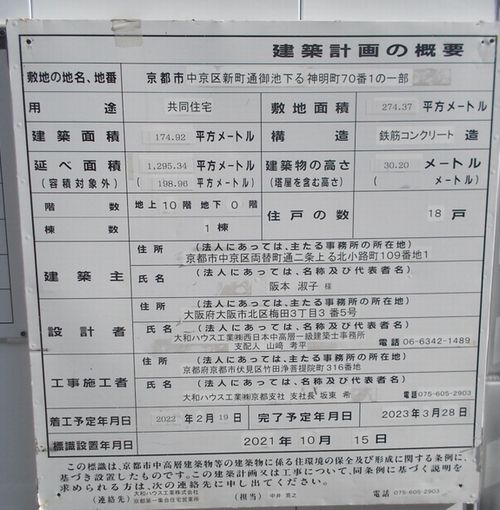 建築計画の概要
敷地の地名、地番 京都市中京区新町通御池下る神明町70番1の一部
用途 共同住宅 敷地面積 274.37 平方メートル
建築面積 174.92 平方メートル 構造 鉄筋コンクリート 造
延べ面積 1,295.34 平方メートル 建築物の高さ 30.20 メートル
(容積対象外) ( 198.96 平方メートル) (塔屋を含む高さ) ( メートル)
階数 地上10階 地下0階 住戸の数 18戸
棟数 1棟
建築主 住所 (法人にあっては、主たる事務所の所在地)
京都市中京区両替町通二条上る北小路町109番地1
氏名 (法人にあっては、名称及び代表者名)
阪本 淑子 様
設計者 住所 (法人にあっては、主たる事務所の所在地)
大阪府大阪市北区梅田3丁目3番5号
氏名 (法人にあっては、名称及び代表者名)
大和ハウス工業㈱西日本中高層一級建築士事務所
支配人 山﨑 考平 電話 06-6342-1489
工事施工者 住所 (法人にあっては、主たる事務所の所在地)
京都府京都市伏見区竹田浄菩提院町316番地
氏名 (法人にあっては、名称及び代表者名)
大和ハウス工業㈱京都支社 支社長 坂東 希 電話 075-605-2903
着工予定年月日 2022年2月19日 完了予定年月日 2023年3月28日
標識設置年月日 2021年10月15日
この標識は、京都市中高層建築物等の建築物に係る住環境の保全及び形成に関する条例に、
基づき設置したものです。この建築計画又は工事について、同条例に基づく説明を
求められる方は、次の連絡先に申し出てください。
大和ハウス工業株式会社
(連絡先) 京都第一集合住宅営業所 (担当) 中井 寛之 電話 075-605-2903